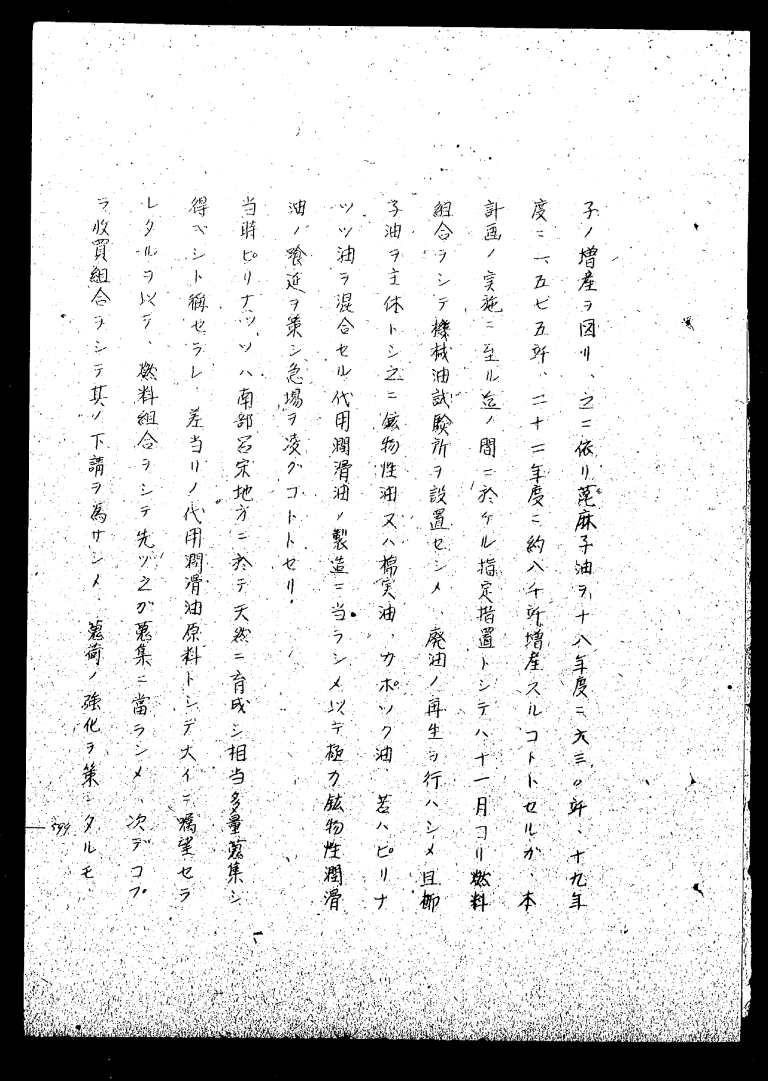 子ノ増産ヲ図リ、之ニ依リ蓖麻子油ヲ、十八年度ニ六三〇竏、十九年
度ニ一、五七五竏、二十二年度ニ約八千竏増産スルコトトセルガ、本
計画ノ実施ニ至ル迄ノ間ニ於ケル指定措置トシテハ十一月ヨリ燃料
組合ヲシテ機械油試験所ヲ設置セシメ、廃油ノ再生ヲ行ハシメ且椰
子油ヲ主体トシ之ニ鉱物性油又ハ棉実油、カポック油、若ハピリナ
ッツ油ヲ混合セル代用潤滑油ノ製造ニ当ラシメ以テ極力鉱物性潤滑
油ノ喰延ヲ策シ急場ヲ凌グコトトセリ。
当時ピリナッツハ南部呂宋地方ニ於テ天然ニ育成シ相当多量蒐集シ
得ベシト称セラレ、差当リノ代用潤滑油原料トシテ大イニ嘱望セラ
レタルヲ以テ、燃料組合ヲシテ先ヅ之ガ蒐集ニ當ラシメ、次デコプ
ラ收買組合ヲシテ其ノ下請ヲ為サシメ、蒐荷ノ強化ヲ策シタルモ
599